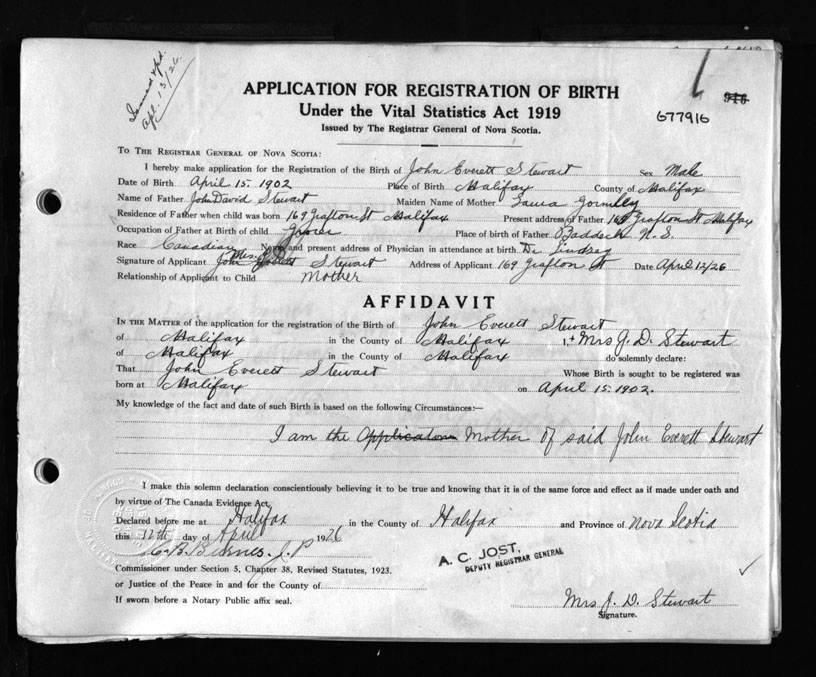 Issued & pd.
Apl. 13/26
916
677916
APPLICATION FOR REGISTRATION OF BIRTH
Under the Vital Statistics Act 1919
Issued by The Registrar General of Nova Scotia.
TO THE REGISTRAR GENERAL OF NOVA SCOTIA:
I hereby make application for the Registration of the Birth of John Everett Stewart Sex Male
Date of Birth April 15. 1902 Place of Birth Halifax County of Halifax
Name of Father John David Stewart Maiden Name of Mother Laura Gormley
Residence of Father when child was born 169 Grafton St Halifax Present address of Father 169 Grafton St Halifax
Occupation of Father at Birth of child Grocer Place of birth of Father Baddeck N. S.
Race Canadian Name and present address of Physician in attendance at birth Dr Lindsey
Signature of Applicant Mrs. John Stewart Address of Applicant 169 Grafton St Date April 12/26
Relationship of Applicant to Child Mother
AFFIDAVIT
IN THE MATTER of the application for the registration of the Birth of John Everett Stewart
of Halifax in the County of Halifax I, + Mrs J. D. Stewart
of Halifax in the County of Halifax do solemnly declare:
That John Everett Stewart Whose Birth is sought to be registered was
born at Halifax on April 15. 1902.
My knowledge of the fact and date of such Birth is based on the following Circumstances:—
I am the Mother of said John Everett Stewart
I make this solemn declaration conscientiously believing it to be true and knowing that it is of the same force and effect as if made under oath and
by virtue of The Canada Evidence Act.
Declared before me at Halifax in the County of Halifax and Province of Nova Scotia
this 12th day of April 1926
A. C. JOST,
DEPUTY REGISTRAR GENERAL
Commissioner under Section 5, Chapter 38, Revised Statutes, 1923.
or Justice of the Peace in and for the County of
If sworn before a Notary Public affix seal.
Mrs J. D. Stewart
Signature.